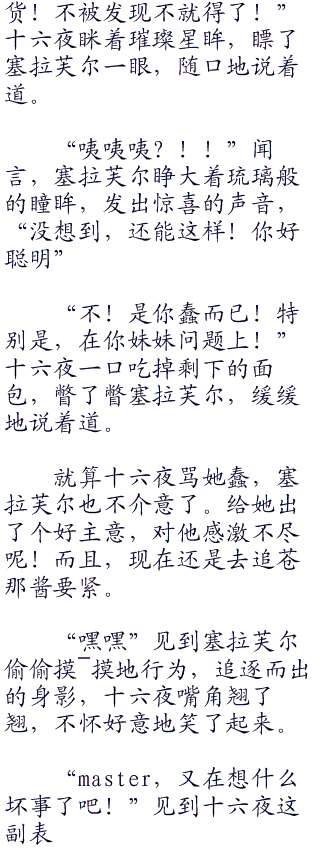 货！不被发现不就得了！”
十六夜眯着璀璨星眸，瞟了
塞拉芙尔一眼，随口地说着
道。
“咦咦咦？！！”闻
言，塞拉芙尔睁大着琉璃般
的瞳眸，发出惊喜的声音，
“没想到，还能这样！你好
聪明”
“不！是你蠢而已！特
别是，在你妹妹问题上！”
十六夜一口吃掉剩下的面
包，瞥了瞥塞拉芙尔，缓缓
地说着道。
就算十六夜骂她蠢，塞
拉芙尔也不介意了。给她出
了个好主意，对他感激不尽
呢！而且，现在还是去追苍
那酱要紧。
“嘿嘿”见到塞拉芙尔
偷偷摸¯摸地行为，追逐而出
的身影，十六夜嘴角翘了
翘，不怀好意地笑了起来。
“master，又在想什么
坏事了吧！”见到十六夜这
副表